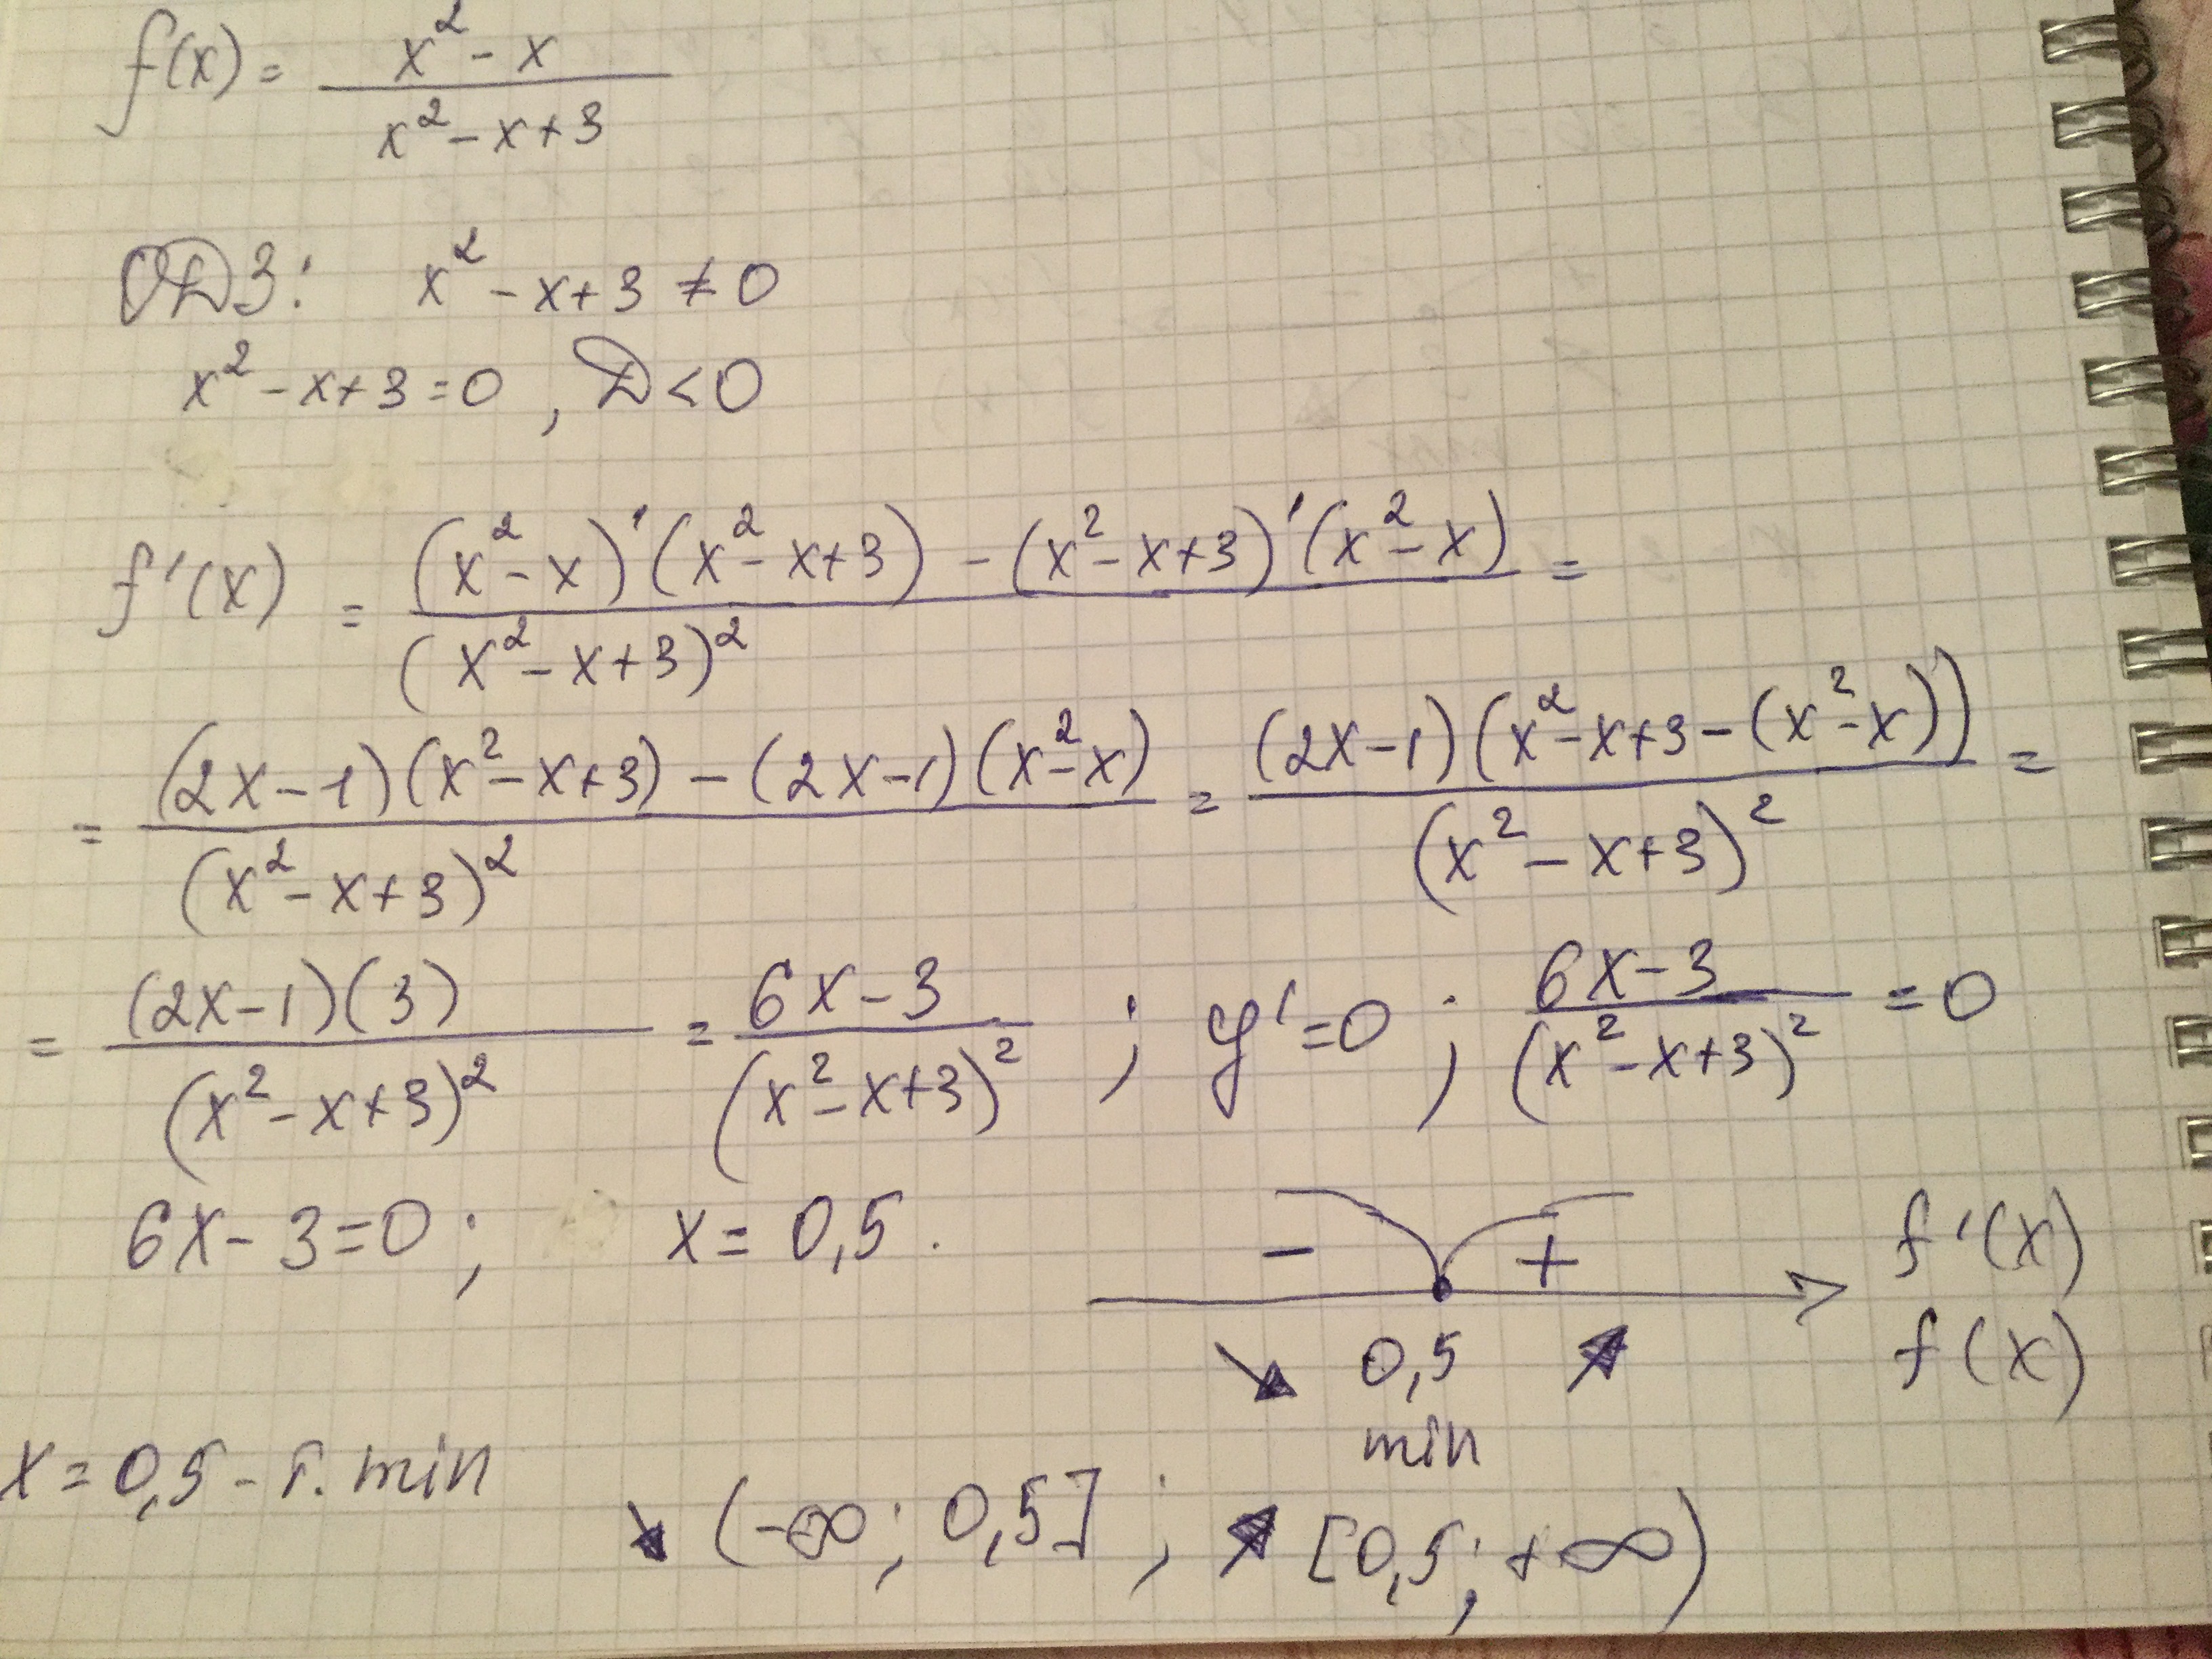 f(x) = (x² - x)/(x² - x + 3)
ОДЗ: x² - x + 3 ≠ 0
x² - x + 3 = 0, D < 0
f'(x) = ((x² - x)'(x² - x + 3) - (x² - x + 3)'(x² - x))/(x² - x + 3)² =
= ((2x - 1)(x² - x + 3) - (2x - 1)(x² - x))/(x² - x + 3)² = ((2x - 1)(x² - x + 3 - (x² - x)))/(x² - x + 3)² =
= ((2x - 1)(3))/(x² - x + 3)² = (6x - 3)/(x² - x + 3)² ; y' = 0 ; (6x - 3)/(x² - x + 3)² = 0
6x - 3 = 0 ; x = 0,5 .
- + f'(x)
↘ 0,5 ↗ f(x)
min
x = 0,5 - т. min
↘ (-∞; 0,5] ; ↗ [0,5; +∞)